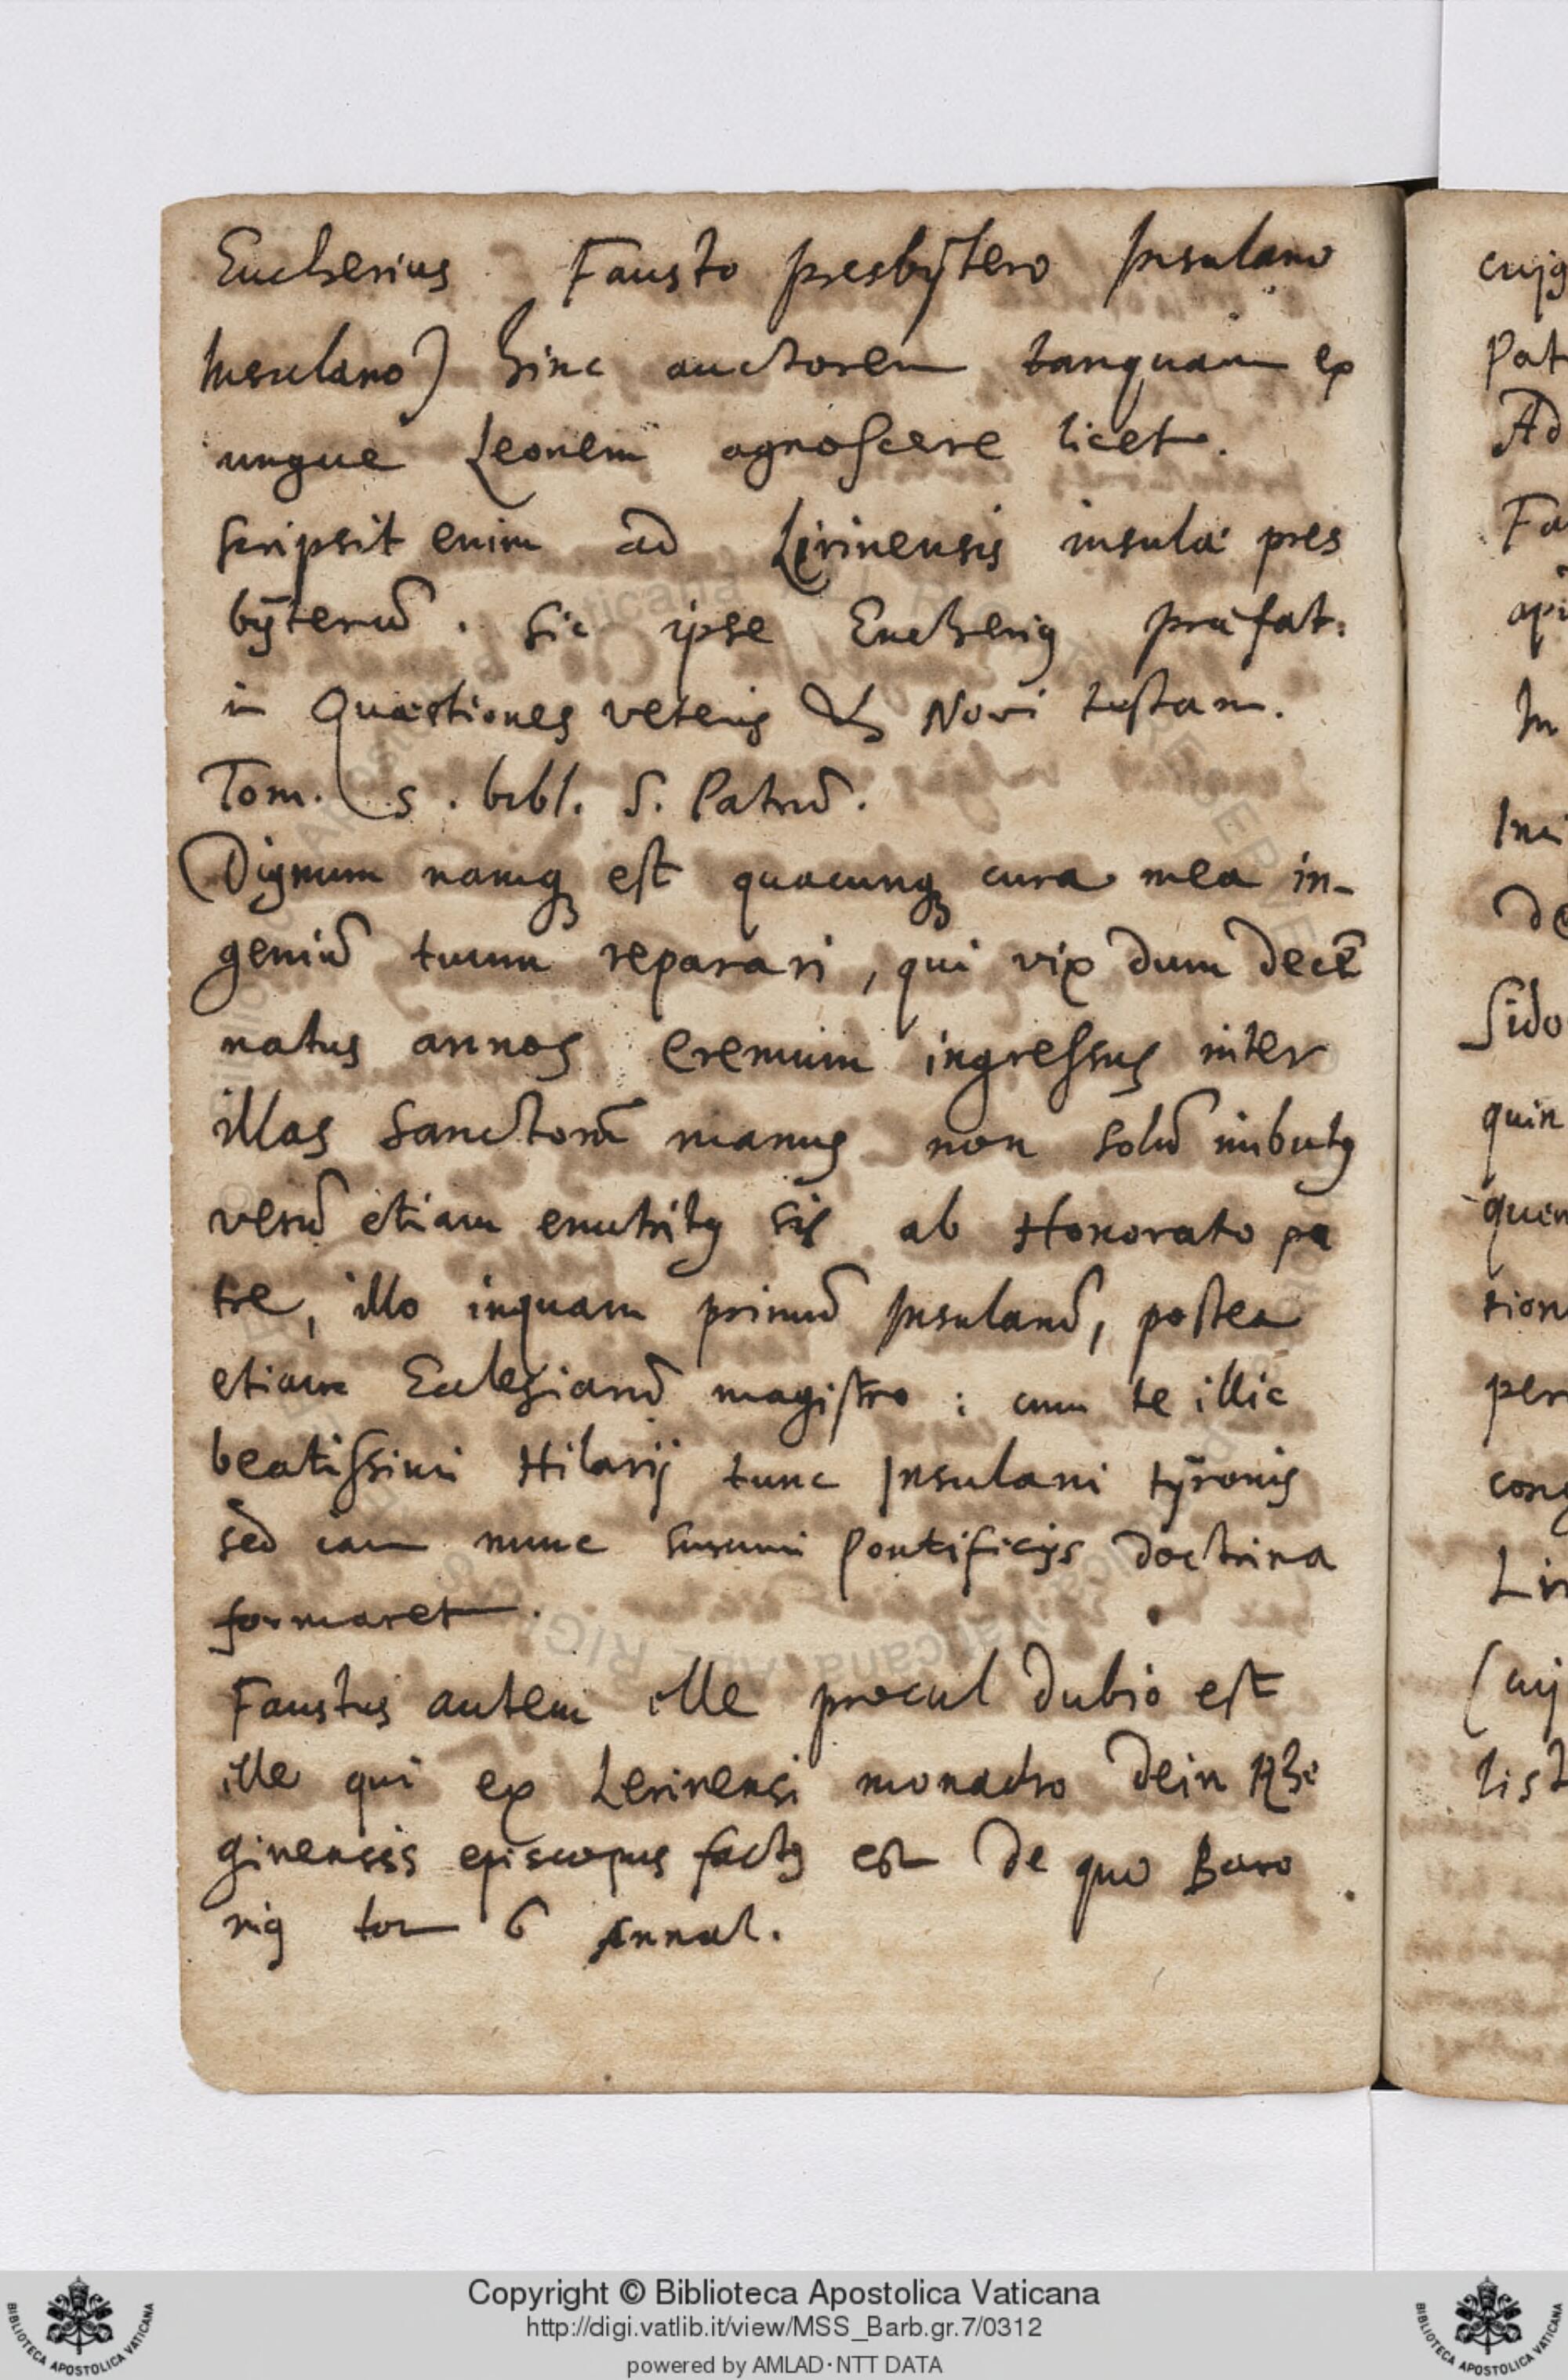 Eucherius Fausto presbÿtero Insulano
Insulano) hinc auctorem tanquam ex
ungue Leonem agnoscere licet.
scripsit enim ad Lirinensis insulæ pres
bÿterũ. Sic ipse Eucherius præfat:
in Quæstiones veteris & Novi testam.
Tom. 5. bibl. S. Patrũ.
Dignum namq est quacunq cura mea in-
geniũ tuum reparari, qui vix dum decẽ
natus annos eremum ingressus inter
illas Sanctorũ manus non solũ imbutus
verũ etiam enutritus sis ab Honorato pa
tre, illo inquam primũ Insulanũ, postea
etiam Ecclesiarũ magistro: cum te illic
beatissimi Hilarij tunc Insulani tÿronis
sed iam nunc summi Pontificijs doctrina
formaret.
Faustus autem ille procul dubio est
ille qui ex Lerinensi monacho dein Rhe
ginensis episcopus factus est de quo Baro
nius tom 6 Annal.
cujus
Pat
Ad
Fa
api
In
de
Sido
quin
quem
tion
per
cong
Lir
(cuj
list
Copyright © Biblioteca Apostolica Vaticana
http://digi.vatlib.it/view/MSS_Barb.gr.7/0312
powered by AMLAD·NTT DATA
BIBLIOTECA APOSTOLICA VATICANA
BIBLIOTECA APOSTOLICA VATICANA